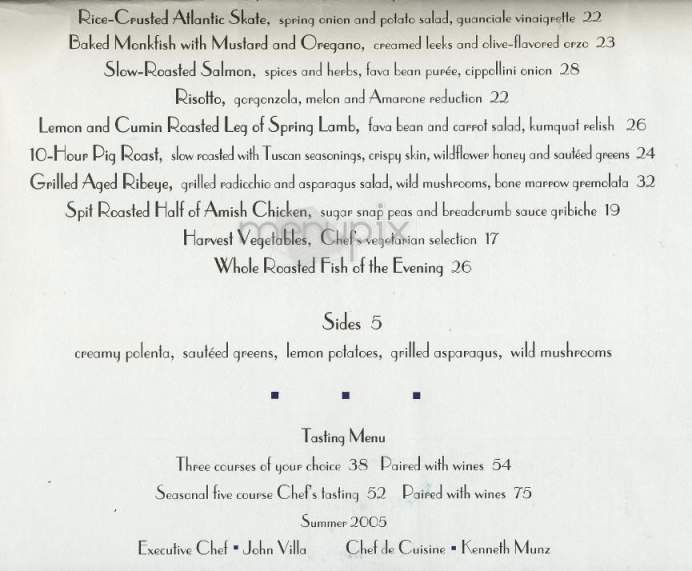 Rice-Crusted Atlantic Skate, spring onion and potato salad, guanciale vinaigrette 22
Baked Monkfish with Mustard and Oregano, creamed leeks and olive-flavored orzo 23
Slow-Roasted Salmon, spices and herbs, fava bean purée, cippollini onion 28
Risotto, gorgonzola, melon and Amarone reduction 22
Lemon and Cumin Roasted Leg of Spring Lamb, fava bean and carrot salad, kumquat relish 26
10-Hour Pig Roast, slow roasted with Tuscan seasonings, crispy skin, wildflower honey and sautéed greens 24
Grilled Aged Ribeye, grilled radicchio and asparagus salad, wild mushrooms, bone marrow gremolata 32
Spit Roasted Half of Amish Chicken, sugar snap peas and breadcrumb sauce gribiche 19
menupix
Harvest Vegetables, Chef's vegetarian selection 17
Whole Roasted Fish of the Evening 26
Sides 5
creamy polenta, sautéed greens, lemon potatoes, grilled asparagus, wild mushrooms
Tasting Menu
Three courses of your choice 38 Paired with wines 54
Seasonal five course Chef's tasting 52 Paired with wines 75
Summer 2005
Executive Chef ▪ John Villa Chef de Cuisine ▪ Kenneth Munz